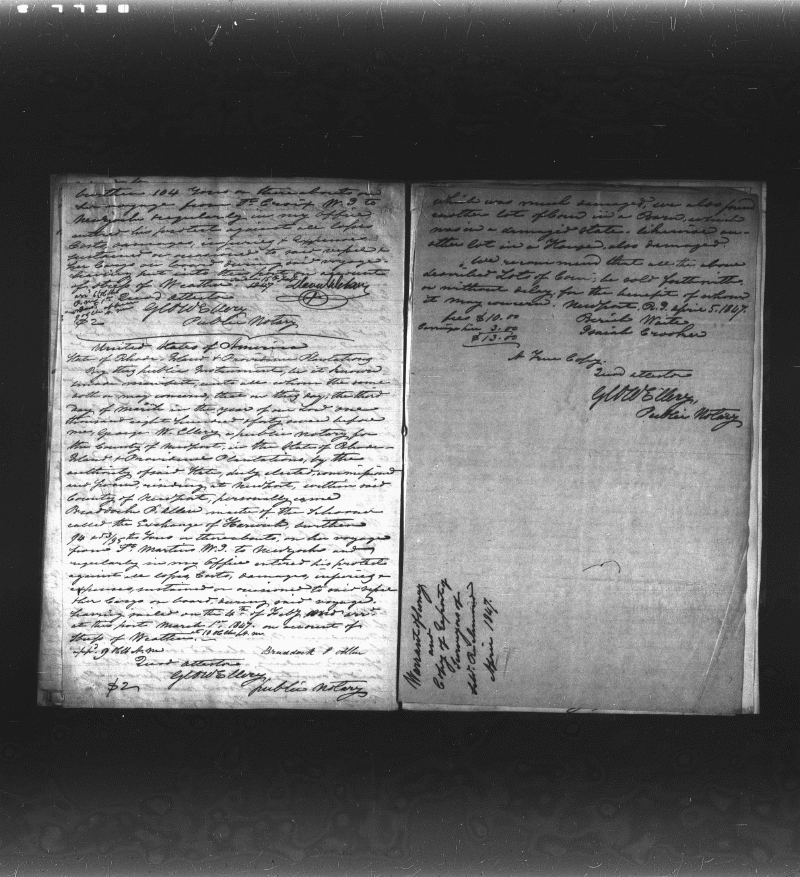 burthen 104 Tons or thereabouts on
her voyage from St. Croix W. I. to
regularly in my Office
his protest against all losses
Costs, damages, injuries & expenses
sustained or occasioned to said
her Cargo on board during said voyage
having put into this port on account
of stress of Weather 1847
Quod attestor
Geo W Ellery
$2
Public Notary
United States of America
State of Rhode Island & Providence Plantations
By this public Instrument, be it known
and made manifest, unto all whom the same
doth or may concern, that on this day, the third
Day of March in the year of our Lord one
thousand eight hundred forty seven before
me, George W. Ellery, a public Notary, for
the County of Newport, in the State of Rhode
Island & Providence Plantations, by the
authority of said State, duly elected commissioned
and sworn, residing at Newport, within said
County of Newport, personally came
Braddock P. Allen master of the Schooner
called the Exchange of Harwich burthen
94 Tons or thereabouts, on her voyage
from St. Martins W. I. to and
regularly in my Office entered his protest
against all losses, Costs, damages, injuries &
expenses, sustained or occasioned to said
& her Cargo on board during said voyage
having sailed on the 4th of Feby and arrd
at this port March 1st 1847. on account of
Stress of Weather.
9 A.m
Braddock P Allen
Quod attestor
Geo W Ellery
$2
public Notary
which was much damaged, we also found
another lot of Corn in a Barn, which
was in a damaged state. likewise an-
other lot in a House, also damaged
We recommend that all the above
described Lots of Corn, be sold forthwith
or without delay for the benefit of whom
it may concern. Newport, R. I. April 5. 1847.
fees $10.00
3.00
$13.00
Isaiah Crooker
A True Copy.
Quod attestor
Geo W Ellery,
Public Notary
Warrant of Survey
and
Copy of Report of
Surveyors of
April 1847.